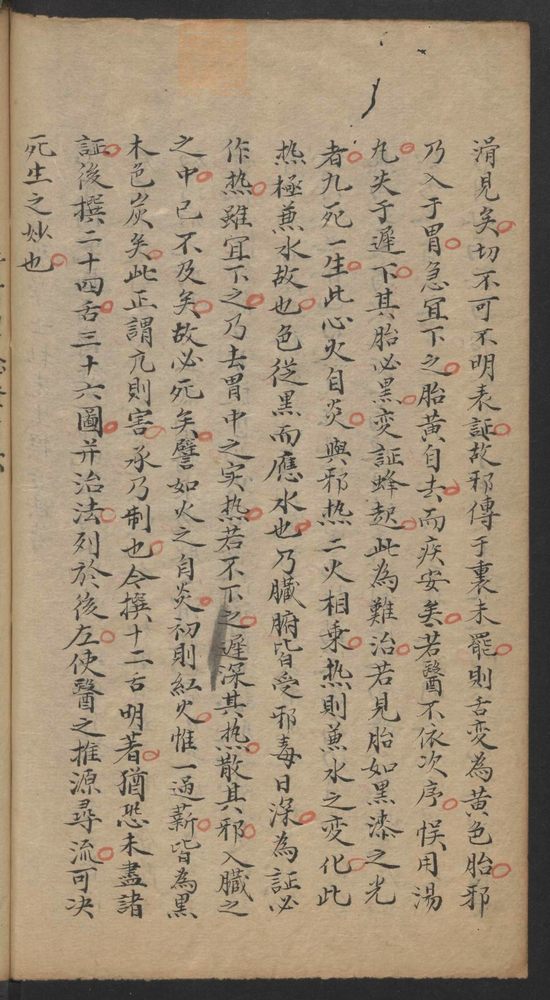 滑見矣切不可不明表証故邪傳于裏未罷則舌変為黄色胎邪
乃入于胃急冝下之胎黄自去而疾安矣若醫不依次序悮用湯
丸失于遲下其胎必黑変証蜂起此為難治若見胎如黑漆之光
者九死一生此心火自炎與邪热二火相乗热則蕙水之変化此
热極蕙水故也色從黑而應水也乃臟腑皆受邪毒日深為証必
作热雖冝下之乃去胃中之实热若不下之遲深其热散其邪入臟之
之中已不及矣故必死矣譬如火之自炎初則紅火惟一過薪皆為黑
木色炭矣此正謂亢則害承乃制也今撰十二舌明著猶恐未盡諸
証後撰二十四舌三十六圖并治法列於後左使醫之推源尋流可决
死生之妙也